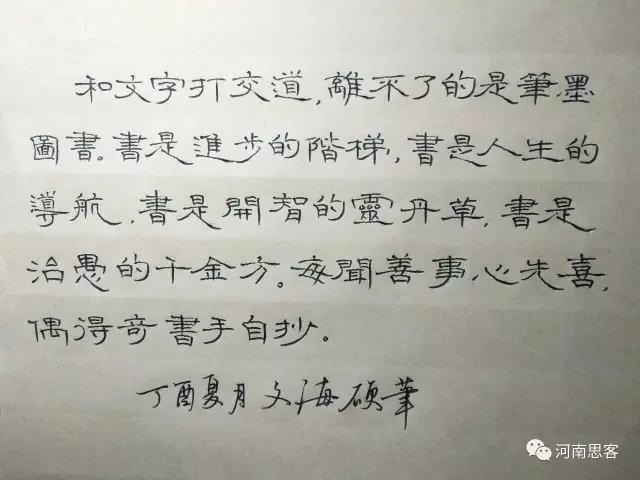 和文字打交道,離不了的是筆墨
圖書。書是進步的階梯,書是人生的
導航,書是開智的靈丹草,書是
治愚的千金方。每聞善事心先喜,
偶得奇書手自抄。
丁酉夏月文海碩筆
河南思客